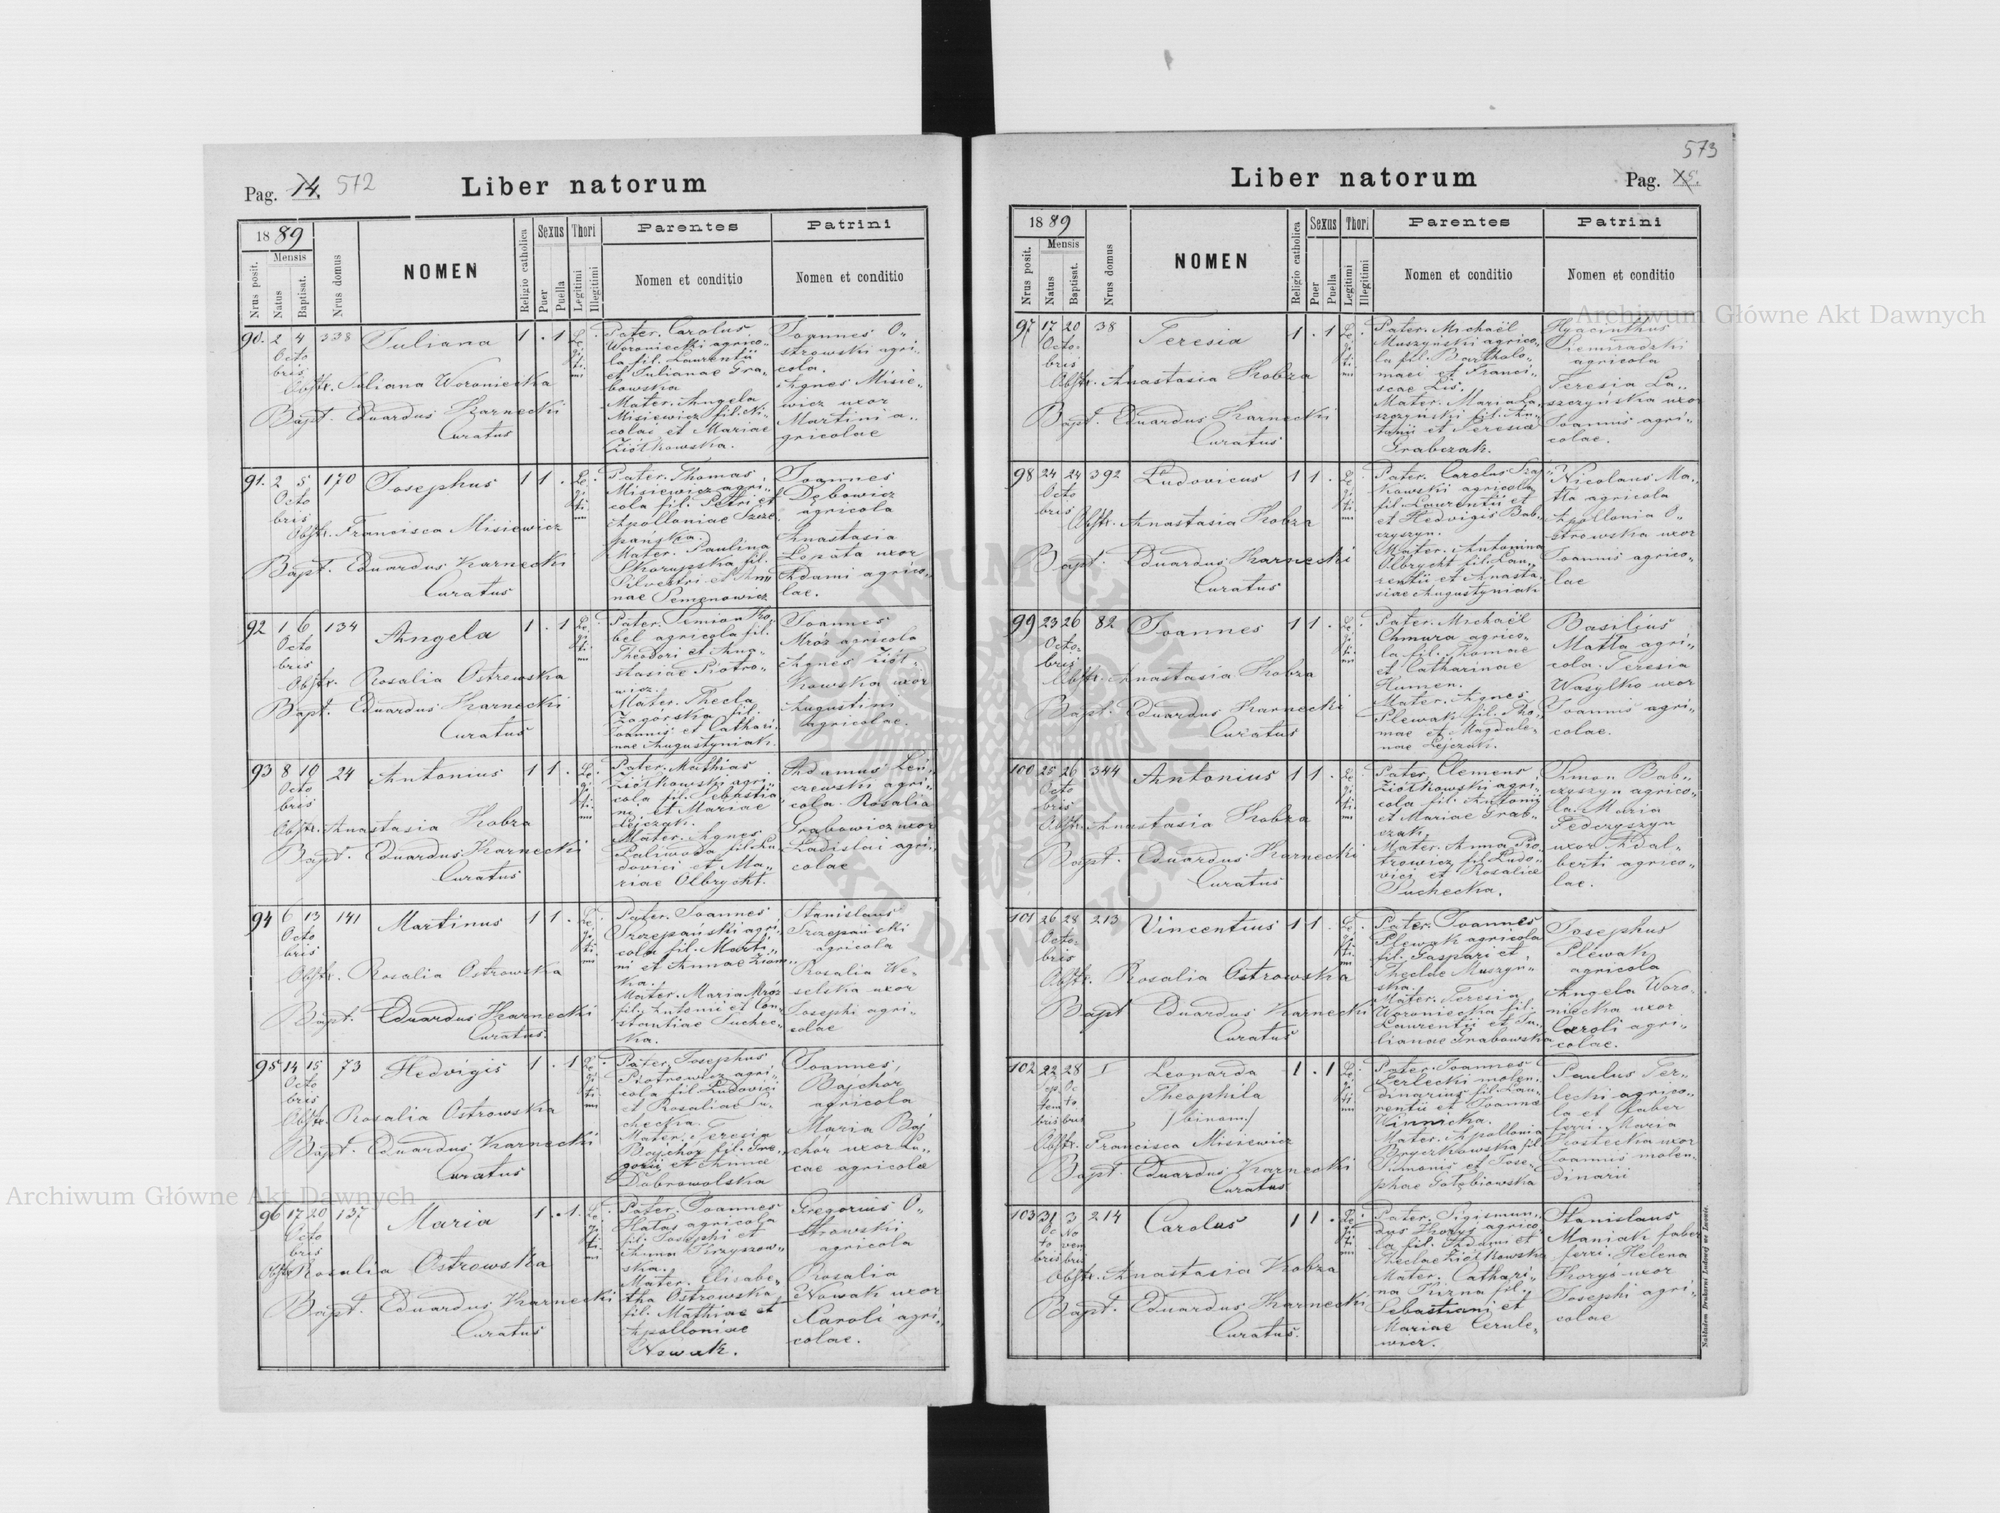 Pag. 14. 572
Liber natorum
1889
Mensis
Nrus posit.
Natus
Baptisat.
Nrus domus
NOMEN
Religio catholica
Sexus
Puer
Puella
Thori
Legitimi
Illegitimi
Parentes
Nomen et conditio
Patrini
Nomen et conditio
90. 2 4 338 Juliana 1 . 1
Octo
bris
Obstr. Juliana Woroniecka
Bapt. Eduardus Karnecki
Curatus
Pater. Carolus
Woroniecki agrico-
la fil. Laurentii
et Julianae Gra-
bowska
Mater. Angela
Misiewicz fil. Ni-
colai et Mariae
Ziółkowska.
Joannes O-
strowski agri-
cola.
Agnes Misie-
wicz uxor
Martini a-
gricolae
91. 2 5 170 Josephus 1 1 .
Octo
bris
Obstr. Francisca Misiewicz
Bapt. Eduardus Karnecki
Curatus
Pater. Thomas
Misiewicz agri-
cola fil. Petri et
Apolloniae Szcze
pańska.
Mater. Paulina
Skorupska fil.
Silvestri et An
nae Semenowicz
Joannes
Dębowicz
agricola
Anastasia
Lopata uxor
Adami agrico-
lae.
92 1 6 134 Angela 1 . 1
Octo
bris
Obstr. Rosalia Ostrowska
Bapt. Eduardus Karnecki
Curatus
Pater. Simion Ko
bel agricola fil.
Theodori et Ana-
stasiae Piotro-
wicz.
Mater. Thecla
Zagorska fil.
Joannis et Cathari-
nae Augustyniak.
Joannes
Mroz agricola
Agnes Ziół-
kowska uxor
Augustini
agricolae.
93 8 10 24 Antonius 1 1 .
Octo
bris
Obstr. Anastasia Kobza
Bapt. Eduardus Karnecki
Curatus
Pater. Mathias
Ziółkowski agri-
cola fil. Sebastia
ni et Mariae
Lejczak.
Mater. Agnes
Paliwoda fil. Lu-
dovici et Ma-
riae Olbrycht.
Adamus
czewski agri-
cola. Rosalia
Grabowicz uxor
Ladislai agri-
colae
94 6 13 141 Martinus 1 1 .
Octo
bris
Obstr. Rosalia Ostrowska
Bapt. Eduardus Karnecki
Curatus.
Pater. Joannes
Szczepański agri-
cola fil. Marti-
ni et Annae
ka.
Mater. Maria Mróz
fil. Antonii et Con-
stantiae Suchec-
ka.
Stanislaus
Szczepański
agricola
Rosalia We-
selska uxor
Josephi agri-
colae
95 14 15 73 Hedvigis 1 . 1
Octo
bris
Obstr. Rosalia Ostrowska
Bapt. Eduardus Karnecki
Curatus
Pater. Josephus
Piotrowicz agri-
cola fil. Ludovici
et Rosaliae Su-
checka.
Mater. Teresia
Bajchor fil. Gre-
gorii et Annae
Dobrowolska
Joannes
Bajchor
agricola
Maria Baj
chór uxor Lu-
cae agricolae
96 17 20 137 Maria 1 . 1
Octo
bris
Obstr. Rosalia Ostrowska
Bapt. Eduardus Karnecki
Curatus
Pater. Joannes
Hatas agricola
fil. Josephi et
Anna Krzyszow-
ska.
Mater. Elisabe-
tha Ostrowska
fil. Mathiae et
Apolloniae
Nowak.
Gregorius O-
strowski
agricola
Rosalia
Nowak uxor
Karoli agri-
colae.
573
Liber natorum
Pag. 15.
1889
Mensis
Nrus posit.
Natus
Baptisat.
Nrus domus
NOMEN
Religio catholica
Sexus
Puer
Puella
Thori
Legitimi
Illegitimi
Parentes
Nomen et conditio
Patrini
Nomen et conditio
97 17 20 38 Teresia 1 . 1
Octo-
bris
Obstr. Anastasia Kobza
Bapt. Eduardus Karnecki
Curatus
Pater. Michaël
Muszyński agrico-
la fil. Bartholo-
maei et Franci-
scae Lis.
Mater. Maria La-
szczyński fil. An-
tonii et Teresia
Grabczak.
Hyacinthus
Siemiradzki
agricola
Teresia La-
szczyńska uxor
Joannis agri-
colae.
98 24 24 392 Ludovicus 1 1 .
Octo
bris
Obstr. Anastasia Kobza
Bapt. Eduardus Karnecki
Curatus
Pater. Carolus Szaj-
kowski agricola
fil. Laurentii et
et Hedvigis Bab-
czyszyn.
Mater. Antonina
Olbrycht fil. Lau-
rentii et Anasta-
siae Augustyniak
Nicolaus Ma-
tla agricola
Apollonia O-
strowska uxor
Joannis agrico-
lae
99 23 26 82 Joannes 1 1 .
Octo-
bris
Obstr. Anastasia Kobza
Bapt. Eduardus Karnecki
Curatus
Pater. Michaël
Chmura agrico-
la fil. Thomae
et Catharinae
Humen.
Mater. Agnes
Plewak fil. Tho-
mae et Magdale-
nae Lejczak.
Basilius
Matla agri-
cola. Teresia
Wasylko uxor
Joannis agri-
colae.
100 25 26 344 Antonius 1 1 .
Octo
bris
Obstr. Anastasia Kobza
Bapt. Eduardus Karnecki
Curatus
Pater. Clemens
Ziółkowski agri-
cola fil. Antonii
et Mariae Grab-
czak
Mater. Anna Pio-
trowicz fil. Ludo-
vici et Rosaliae
Suchecka.
Simon Bab-
czyszyn agrico-
la. Maria
Federyszyn
uxor Adal-
berti agrico-
lae.
101 26 28 213 Vincentius 1 1 .
Octo-
bris
Obstr. Rosalia Ostrowska
Bapt Eduardus Karnecki
Curatus
Pater. Joannes
Plewak agricola
fil. Gaspari et
Theclae Muszyn-
ska.
Mater. Teresia
Woroniecka fil.
Laurentii et Ju-
lianae Grabowska
Josephus
Plewak
agricola
Angela Woro-
niecka uxor
Caroli agri-
colae.
102 22 28 I Leonarda 1 . 1
Sep Oc
tem to
bris bris
Theophila
/binom./
Obstr. Francisca Misiewicz
Bapt. Eduardus Karnecki
Curatus
Pater. Joannes
Terlecki molen-
dinarius fil. Lau-
rentii et Joannae
Winnicka.
Mater. Apollonia
Bryczkowska fil
Simonis et Jose-
phae Gołębiowska
Paulus Ter-
lecki agrico-
la et faber
ferri. Maria
Kostecka uxor
Joannis molen-
dinarii
103 31 3 214 Carolus 1 1 .
Oc No
to vem
bris bris
Obstr. Anastasia Kobza
Bapt. Eduardus Karnecki
Curatus.
Pater. Sigismun-
dus Koryś agrico-
la fil. Adami et
Theclae Ziółkowska
Mater. Cathari-
na Kuzna fil.
Sebastiani et
Mariae Cerule-
wicz.
Stanislaus
Maniak faber
ferri. Helena
Koryś uxor
Josephi agri-
colae
Nakładem Drukarni Ludowej we Lwowie.
Archiwum Główne Akt Dawnych
Archiwum Główne Akt Dawnych
ARCHIWUM GŁÓWNE AKT DAWNYCH